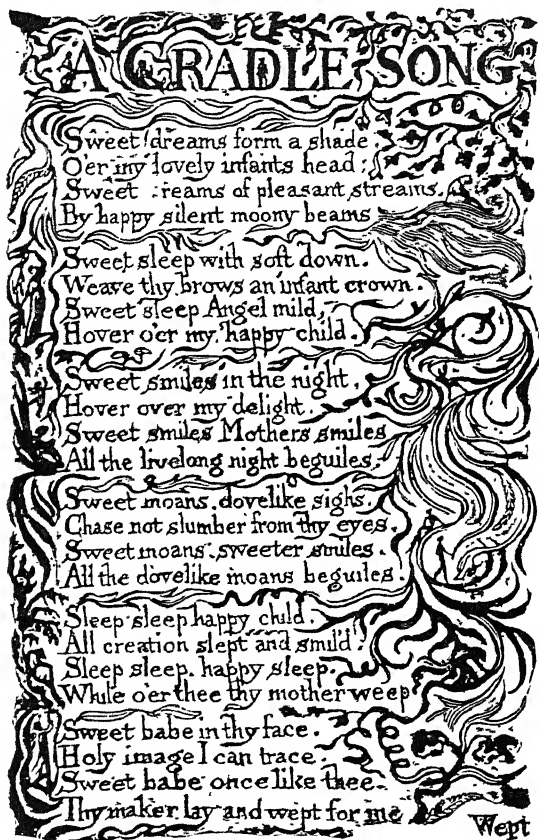 A CRADLE SONG
Sweet dreams form a shade.
O'er my lovely infants head.
Sweet reams of pleasant streams.
By happy silent moony beams
Sweet sleep with soft down.
Weave thy brows an infant crown.
Sweet sleep Angel mild,
Hover o'er my happy child.
Sweet smiles in the night,
Hover over my delight.
Sweet smiles Mothers smiles
All the livelong night beguiles.
Sweet moans, dovelike sighs,
Chase not slumber from thy eyes,
Sweet moans, sweeter smiles.
All the dovelike moans beguiles.
Sleep sleep happy child.
All creation slept and smil'd.
Sleep sleep, happy sleep,
While o'er thee thy mother weep
Sweet babe in thy face.
Holy image I can trace.
Sweet babe once like thee.
Thy maker lay and wept for me
Wept